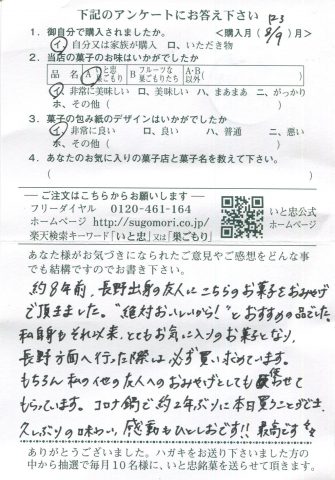 下記のアンケートにお答え下さい
1. 御自分で購入されましたか。 〈購入月( R3 8/9 )月〉
イ、自分又は家族が購入 ロ、いただき物
2. 当店の菓子のお味はいかがでしたか
品 名 A いと忠巣ごもり B フルーツな巣ごもりたち A・B以外( )
イ、非常に美味しい ロ、美味しい ハ、まあまあ ニ、がっかり
ホ、その他( )
3. 菓子の包み紙のデザインはいかがでしたか
イ、非常に良い ロ、良い ハ、普通 ニ、悪い
ホ、その他( )
4. あなたのお気に入りの菓子店と菓子名を教えて下さい。
( )
―ご注文はこちらからお願いします―
フリーダイヤル 0120-461-164
ホームページ http://sugomori.co.jp/
楽天検索キーワード「いと忠」又は「巣ごもり」
いと忠公式
ホームページ
あなた様がお気づきになられたご意見やご感想をどんな事
でも結構ですのでお書き下さい。
約8年前、長野出身の友人にこちらのお菓子をおみやげ
で頂きました。“絶対おいしいから!”とおすすめの品でした。
私自身もそれ以来、とてもお気に入りのお菓子となり、
長野方面へ行った際は必ず買い求めています。
もちろん私の他の友人へのおみやげとしても喜ばせて
もらっています。コロナ禍で約2年ぶりに本日買うことができ、
久しぶりの味わい、感動もひとしおです!! 最高です
ありがとうございました。ハガキをお送り下さいました方
の中から抽選で毎月10名様に、いと忠銘菓を送らせて頂きます。